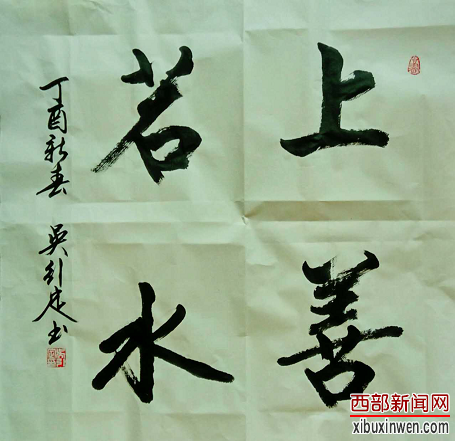 上善
若水
丁酉新春 吴引定书
西部新闻网
xibuxinwen.com